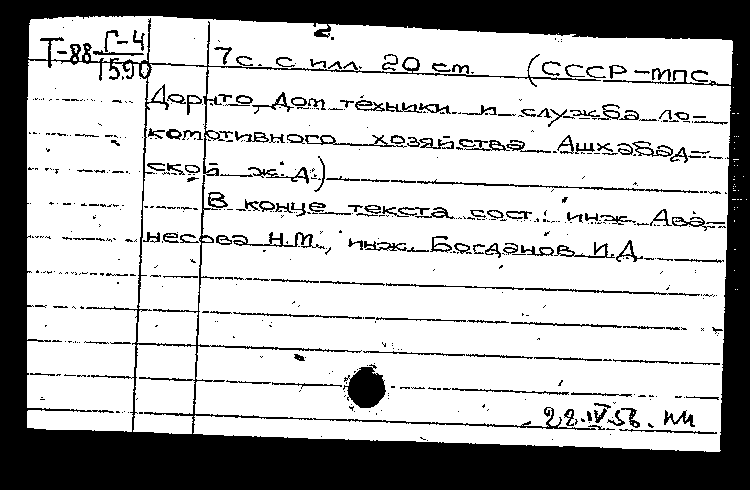 2.
Т-88 Г-4
1590
7 с. с илл. 20 см. (СССР-МПС.
Дорнто, Дом техники и служба ло-
комотивного хозяйства Ашхабад-
ской ж.д.)
В конце текста сост.: инж. Ава-
несова Н.М., инж. Богданов И.Д.
22.IV.56.